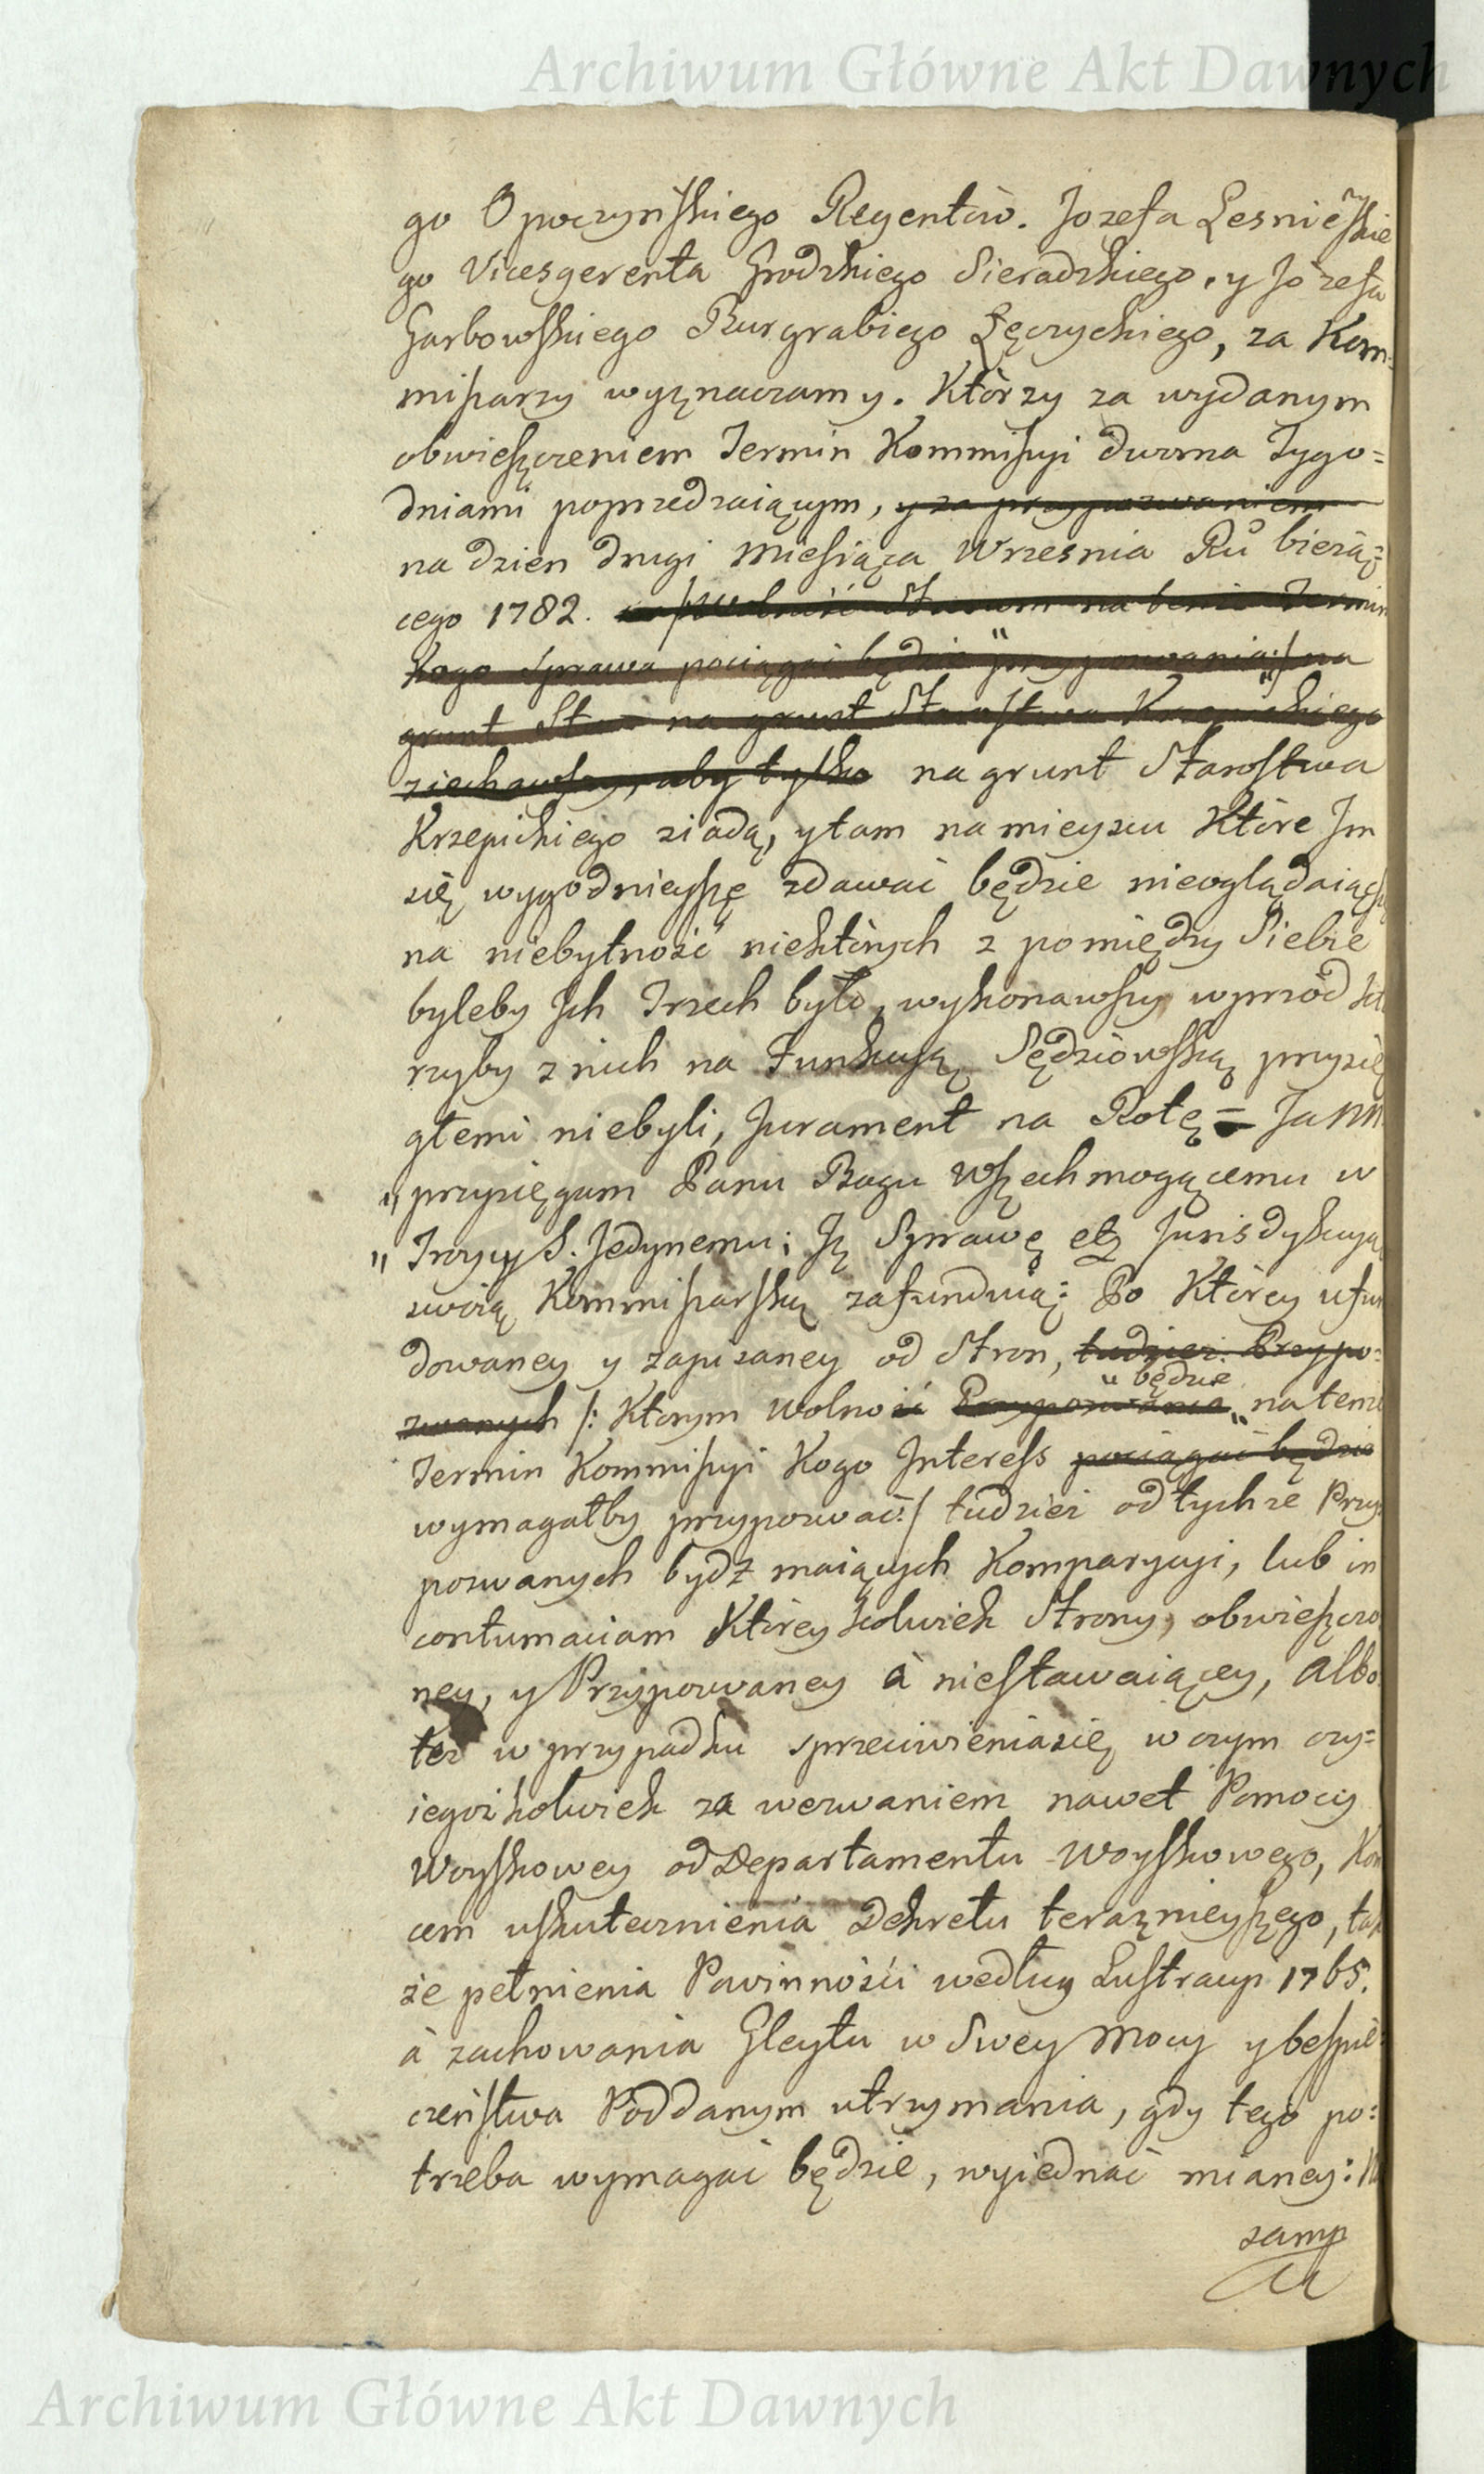 Archiwum Główne Akt Dawnych
go Opoczynskiego Regentów. Jozefa Lesniewskie
go Vicesgerenta Grodzkiego Sieradzkiego, y Józefa
Garbowskiego Burgrabiego Łęczyckiego, za Kom=
missarzy wyznaczamy. Którzy za wydanym
obwieszczeniem Termin Kommissyi dwoma Tygo=
dniami poprzedzaiącym, y za przypozwaniem
na dzien drugi Miesiąca Wrzesnia Ru bieżą=
cego 1782. Stronom na tenże Termin
Kogo Sprawa pociągać będzie przypozwania :/ na
grunt Sta na grunt Starostwa Krzepickiego
ziechawszy, aby tylko na grunt Starostwa
Krzepickiego ziadą, y tam na mieyscu Które Im
się wygodnieysze zdawać będzie nieoglądaiąc się
na niebytność niektórych z pomiędzy Siebie
byleby Ich Trzech było, wykonawszy wprzód Któ
rzyby z nich na Funkcyą Sędziowską przysię
głemi niebyli, Jurament na Rotę = Ja NN
„ przysięgam Panu Bogu Wszechmogącemu w
„ Troycy S. Jedynemu; Iż Sprawę etz Jurisdykcyą
swoią Kommissarską zafunduią: Po Którey ufun
dowaney y zapisaney od Stron, tudzież Przypo=
zwanych /: Ktorym wolno będzie na tenże
Termin Kommissyi Kogo Interess pociągać będzie
wymagałby przypozwać :/ tudzież od tychże Przy
pozwanych bydź maiących Komparycyi, lub in
contumaciam Którey kolwiek Strony, obwieszczo
ney, y Przypozwaney à niestawaiącey, Albo
też w przypadku sprzeciwienia się w czym czy=
iegożkolwiek za wezwaniem nawet Pomocy
Woyskowey od Departamentu Woyskowego, Koń
cem uskutecznienia Dekretu teraznieyszego, tak
że pełnienia Powinności według Lustracyi 1765.
à zachowania Gleytu w Swey Mocy y bespie=
czeństwa Poddanym utrzymania, gdy tego po=
trzeba wymagać będzie, wyiednać mianey:
samp
Archiwum Główne Akt Dawnych